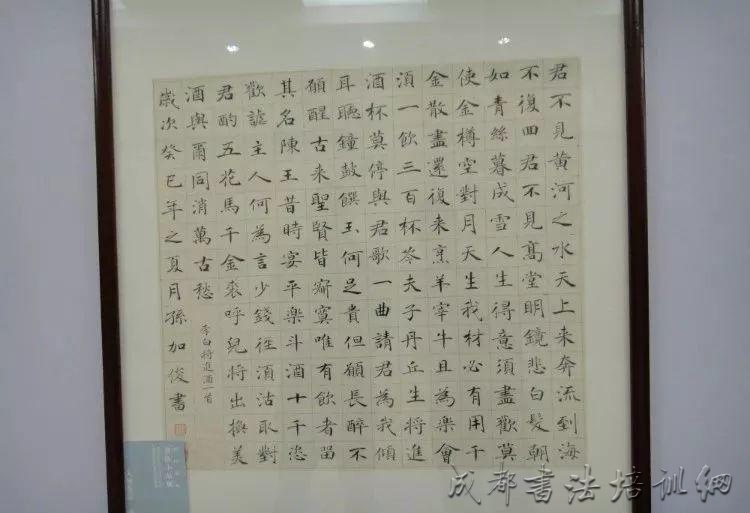 君不見黃河之水天上来奔流到海
不復回君不見高堂明鏡悲白髮朝
如青絲暮成雪人生得意須盡歡莫
使金樽空對月天生我材必有用千
金散盡還復来烹羊宰牛且為樂會
須一飲三百杯岑夫子丹丘生將進
酒杯莫停與君歌一曲請君為我傾
耳聽鐘鼓饌玉何足貴但願長醉不
願醒古来聖賢皆寂寞唯有飲者留
其名陳王昔時宴平樂斗酒十千恣
歡謔主人何為言少錢徑須沽取對
君酌五花馬千金裘呼兒將出換美
酒與爾同消萬古愁
李白將進酒一首
歲次癸巳年之夏月孫加俊書
成都書法培訓網